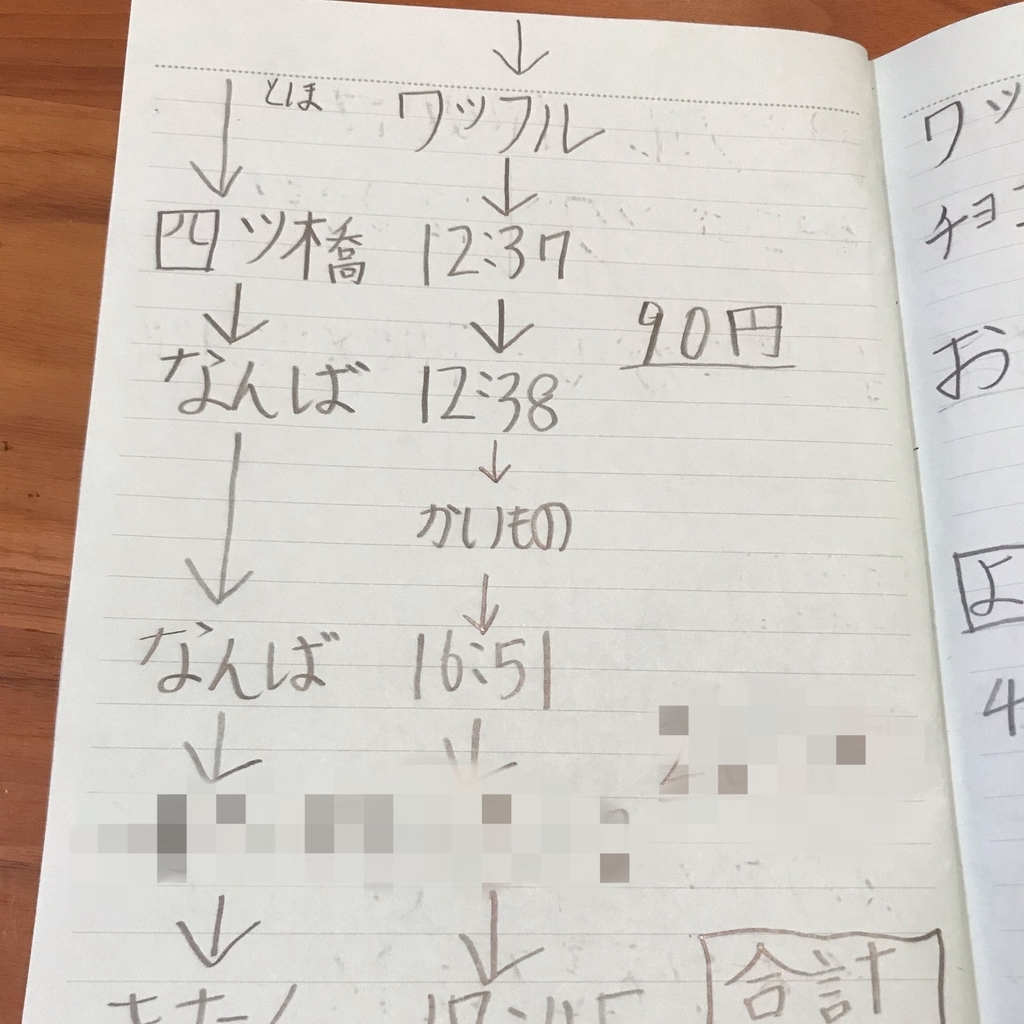 ↓
とほ ワッフル
↓ ↓
四ツ橋 12:37
↓ ↓ 90円
なんば 12:38
↓ ↓
かいもの
↓
なんば 16:51
↓ ↓
↓ ↓
合計
ワッ
チョコ
お
よ
4